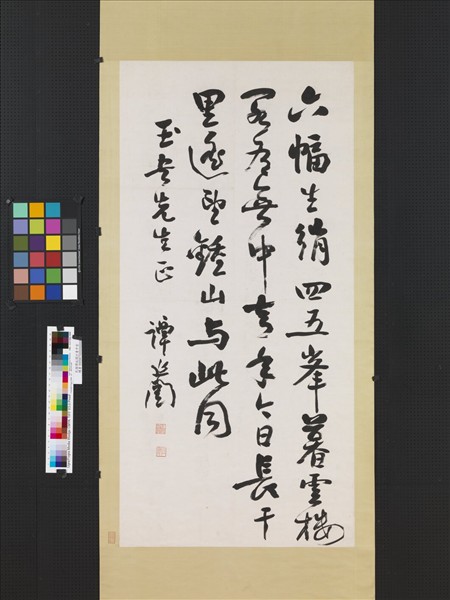 六幅生綃四五峯暮雲樓
閣有無中去年今日長干
里遙望鍾山與此同
玉先生正
譚延闓